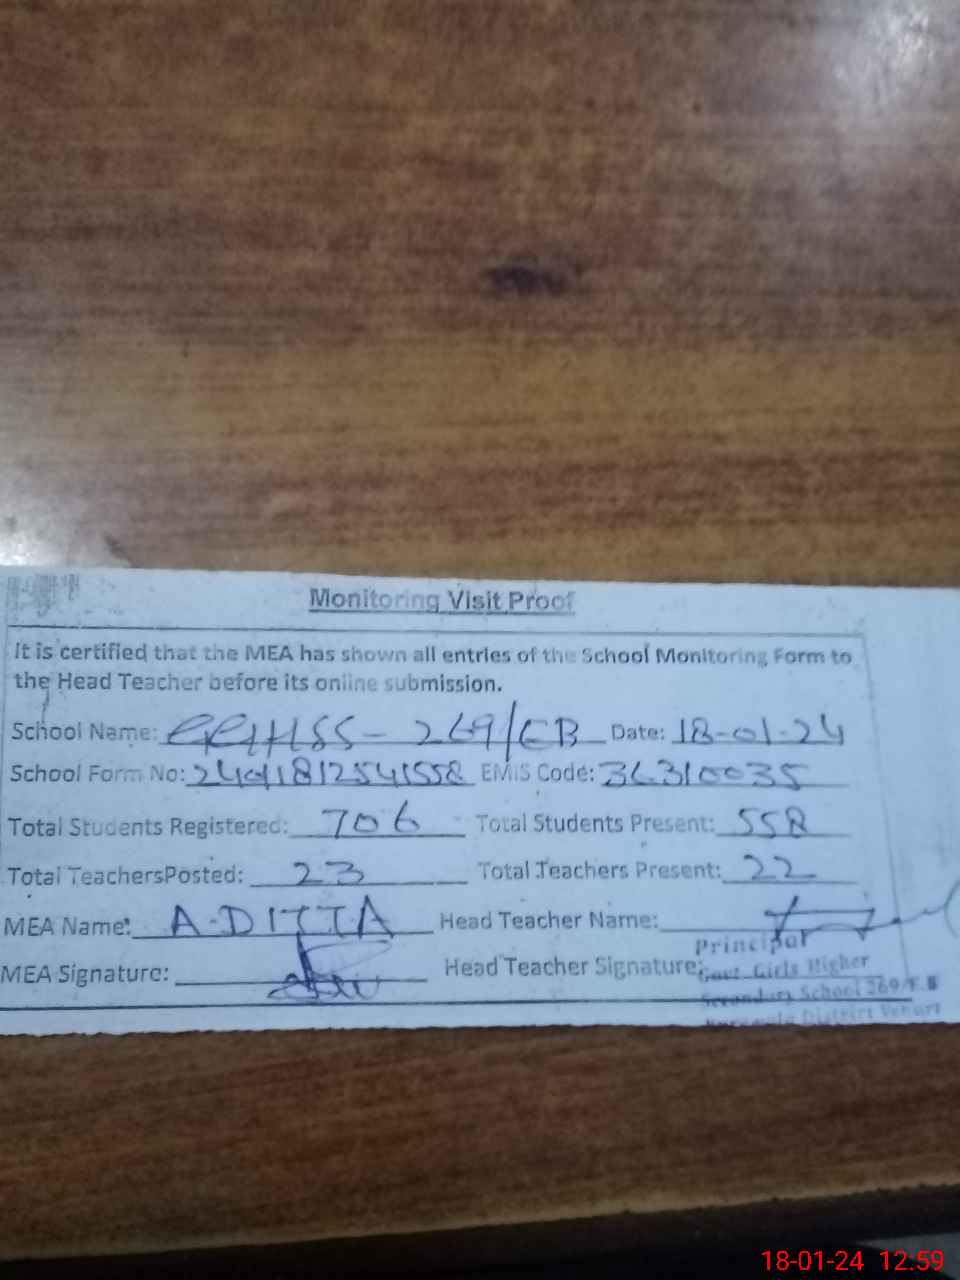 Monitoring Visit Proof
It is certified that the MEA has shown all entries of the School Monitoring Form to
the Head Teacher before its online submission.
School Name: GGHSS - 269/EB Date: 18-01-24
School Form No: 24011812541558 EMIS Code: 36310035
Total Students Registered: 706 Total Students Present: 558
Total TeachersPosted: 23 Total Teachers Present: 22
MEA Name: A.DITTA Head Teacher Name:
MEA Signature: Head Teacher Signature:
Principal
Govt. Girls Higher
Secondary School 269/E.B
District Vehari
18-01-24 12:59